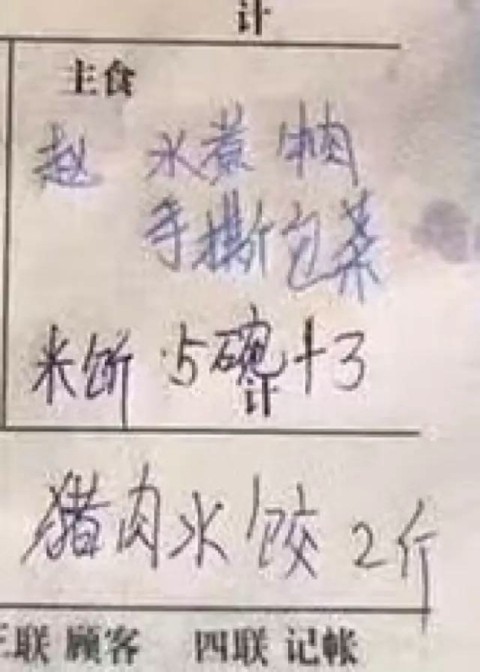 计
主食
赵 水煮牛肉
手撕包菜
米饼 5碗+3
计
猪肉水饺 2斤
三联 顾客 四联 记帐